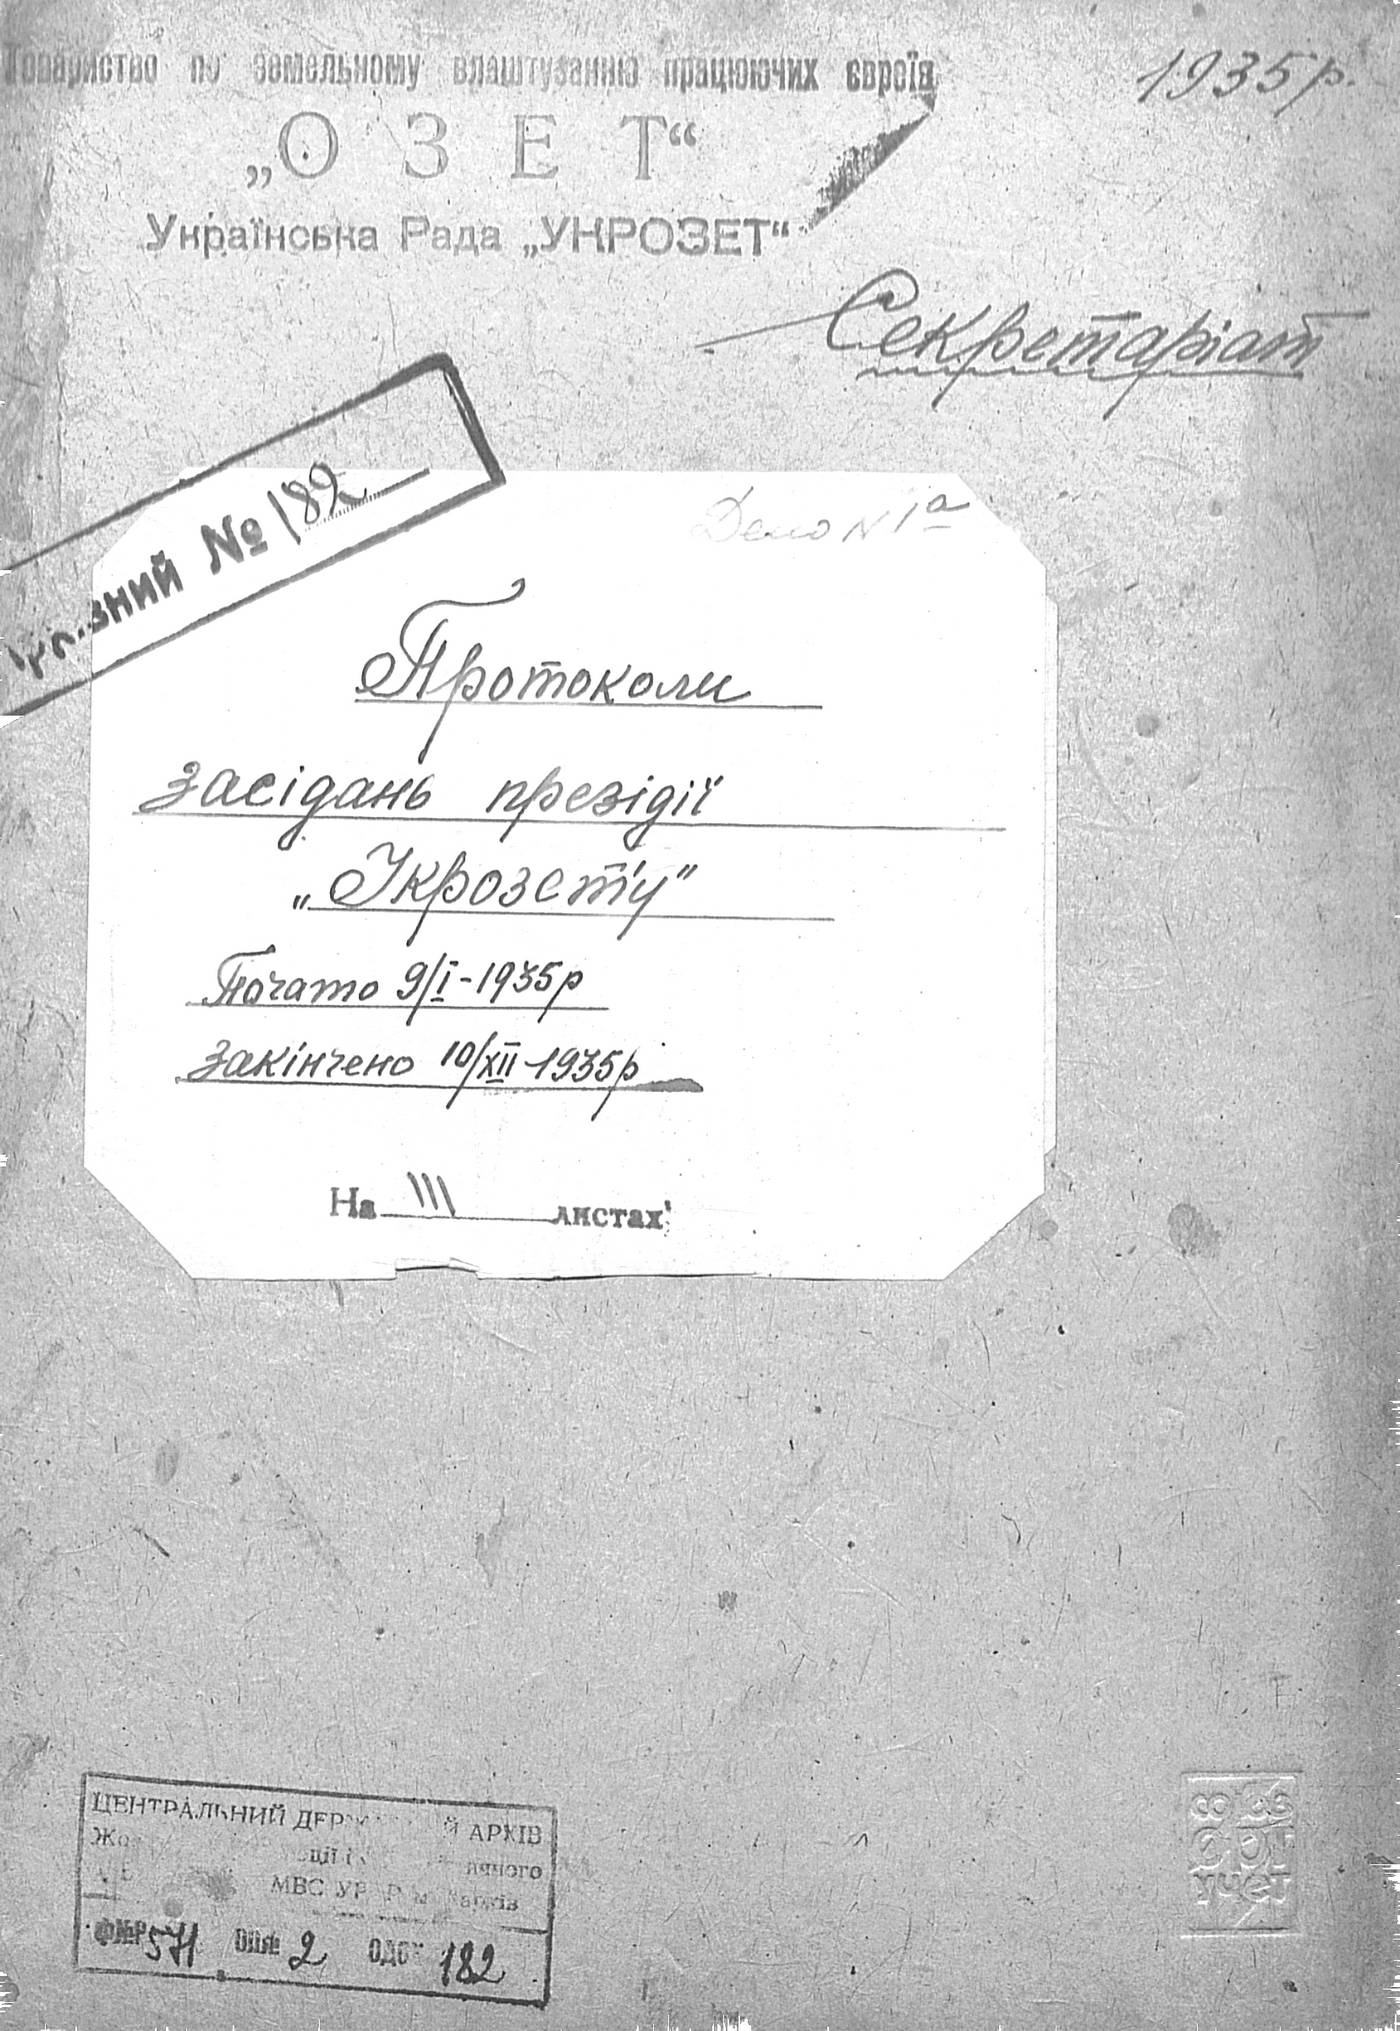 Товариство по земельному влаштуванню працюючих євреїв
1935р.
„О З Е Т“
Українська Рада „УКРОЗЕТ“
Секретаріат
№ 182
Дело N 1а
Протоколи
засідань президії
„Укрозет'у"
Почато 9/I-1935р
Закінчено 10/XII-1935р
На 111 листах
ЦЕНТРАЛЬНИЙ АРХІВ
МВС м. Харків
Ф№Р 571 ОП№ 2 ОД 182
СОЮЗ
УЧЕТ